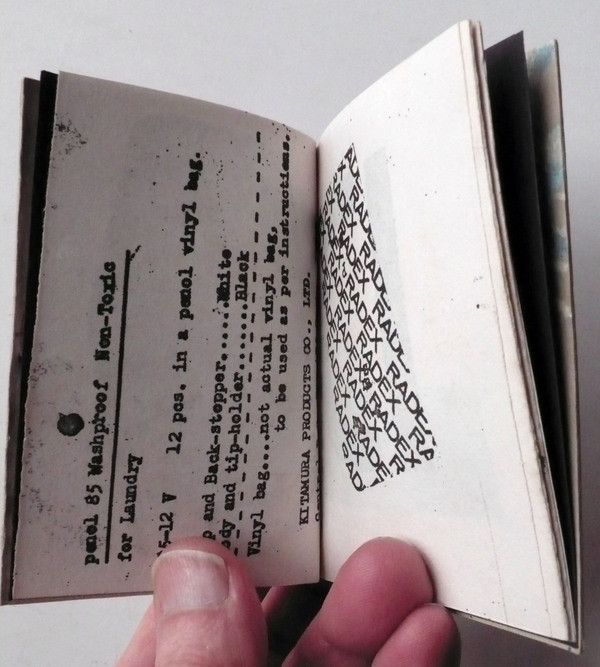 penol 85 Washproof Non-Toxic
for Laundry
5-12 V 12 pcs. in a penol vinyl bag.
p and Back-stepper......White
dy and tip-holder.......Black
Vinyl bag....not actual vinyl bag,
to be used as per instructions.
KITAMURA PRODUCTS CO., LTD.
RADEX RADEX
RADEX RADEX
RADEX RADEX
RADEX RADEX
RADEX